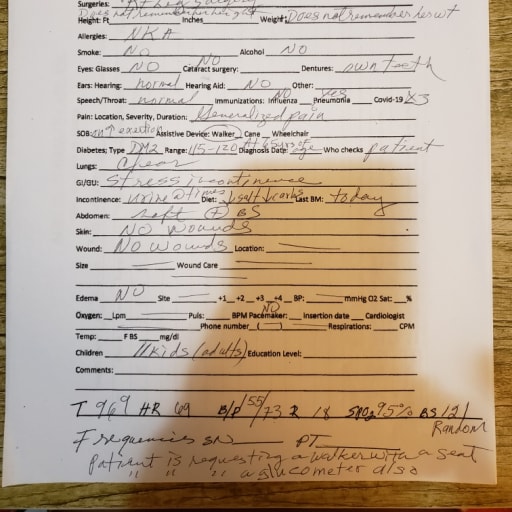 Surgeries:
Does not remember her hgt
Height: Ft Inches Weight: Does not remember her wt
Allergies: NKA
Smoke: NO Alcohol NO
Eyes: Glasses NO Cataract surgery: NO Dentures: own teeth
Ears: Hearing: normal Hearing Aid: NO Other:
Speech/Throat: normal Immunizations: Influenza NO Pneumonia yes Covid-19 X3
Pain: Location, Severity, Duration: Generalized pain
SOB: on exertion Assistive Device: Walker Cane Wheelchair
Diabetes; Type DM2 Range: 115-120 Diagnosis Date: age Who checks patient
Lungs: Clear
GI/GU: Stress incontinence
Incontinence: urine @ times Diet: ↓salt ↓carbs Last BM: today
Abdomen: soft (+) BS
Skin: NO Wounds
Wound: NO Wounds Location:
Size Wound Care
Edema NO Site +1 +2 +3 +4 BP: mmHg O2 Sat: %
Oxygen: Lpm Puls: BPM Pacemaker: NO Insertion date Cardiologist
Phone number ( ) Respirations: CPM
Temp: F BS mg/dl
Children 11 kids (adults) Education Level:
Comments:
T 969 HR 69 B/P 155/73 R 18 SPO2 95% BS 121
Random
Frequencies SN PT
Patient is requesting a walker with a seat
" " " a glucometer also